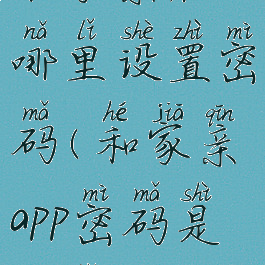 nǎ lǐ shè zhì mì
哪里设置密
mǎ hé jiā qīn
码(和家亲
mì mǎ shì
app密码是